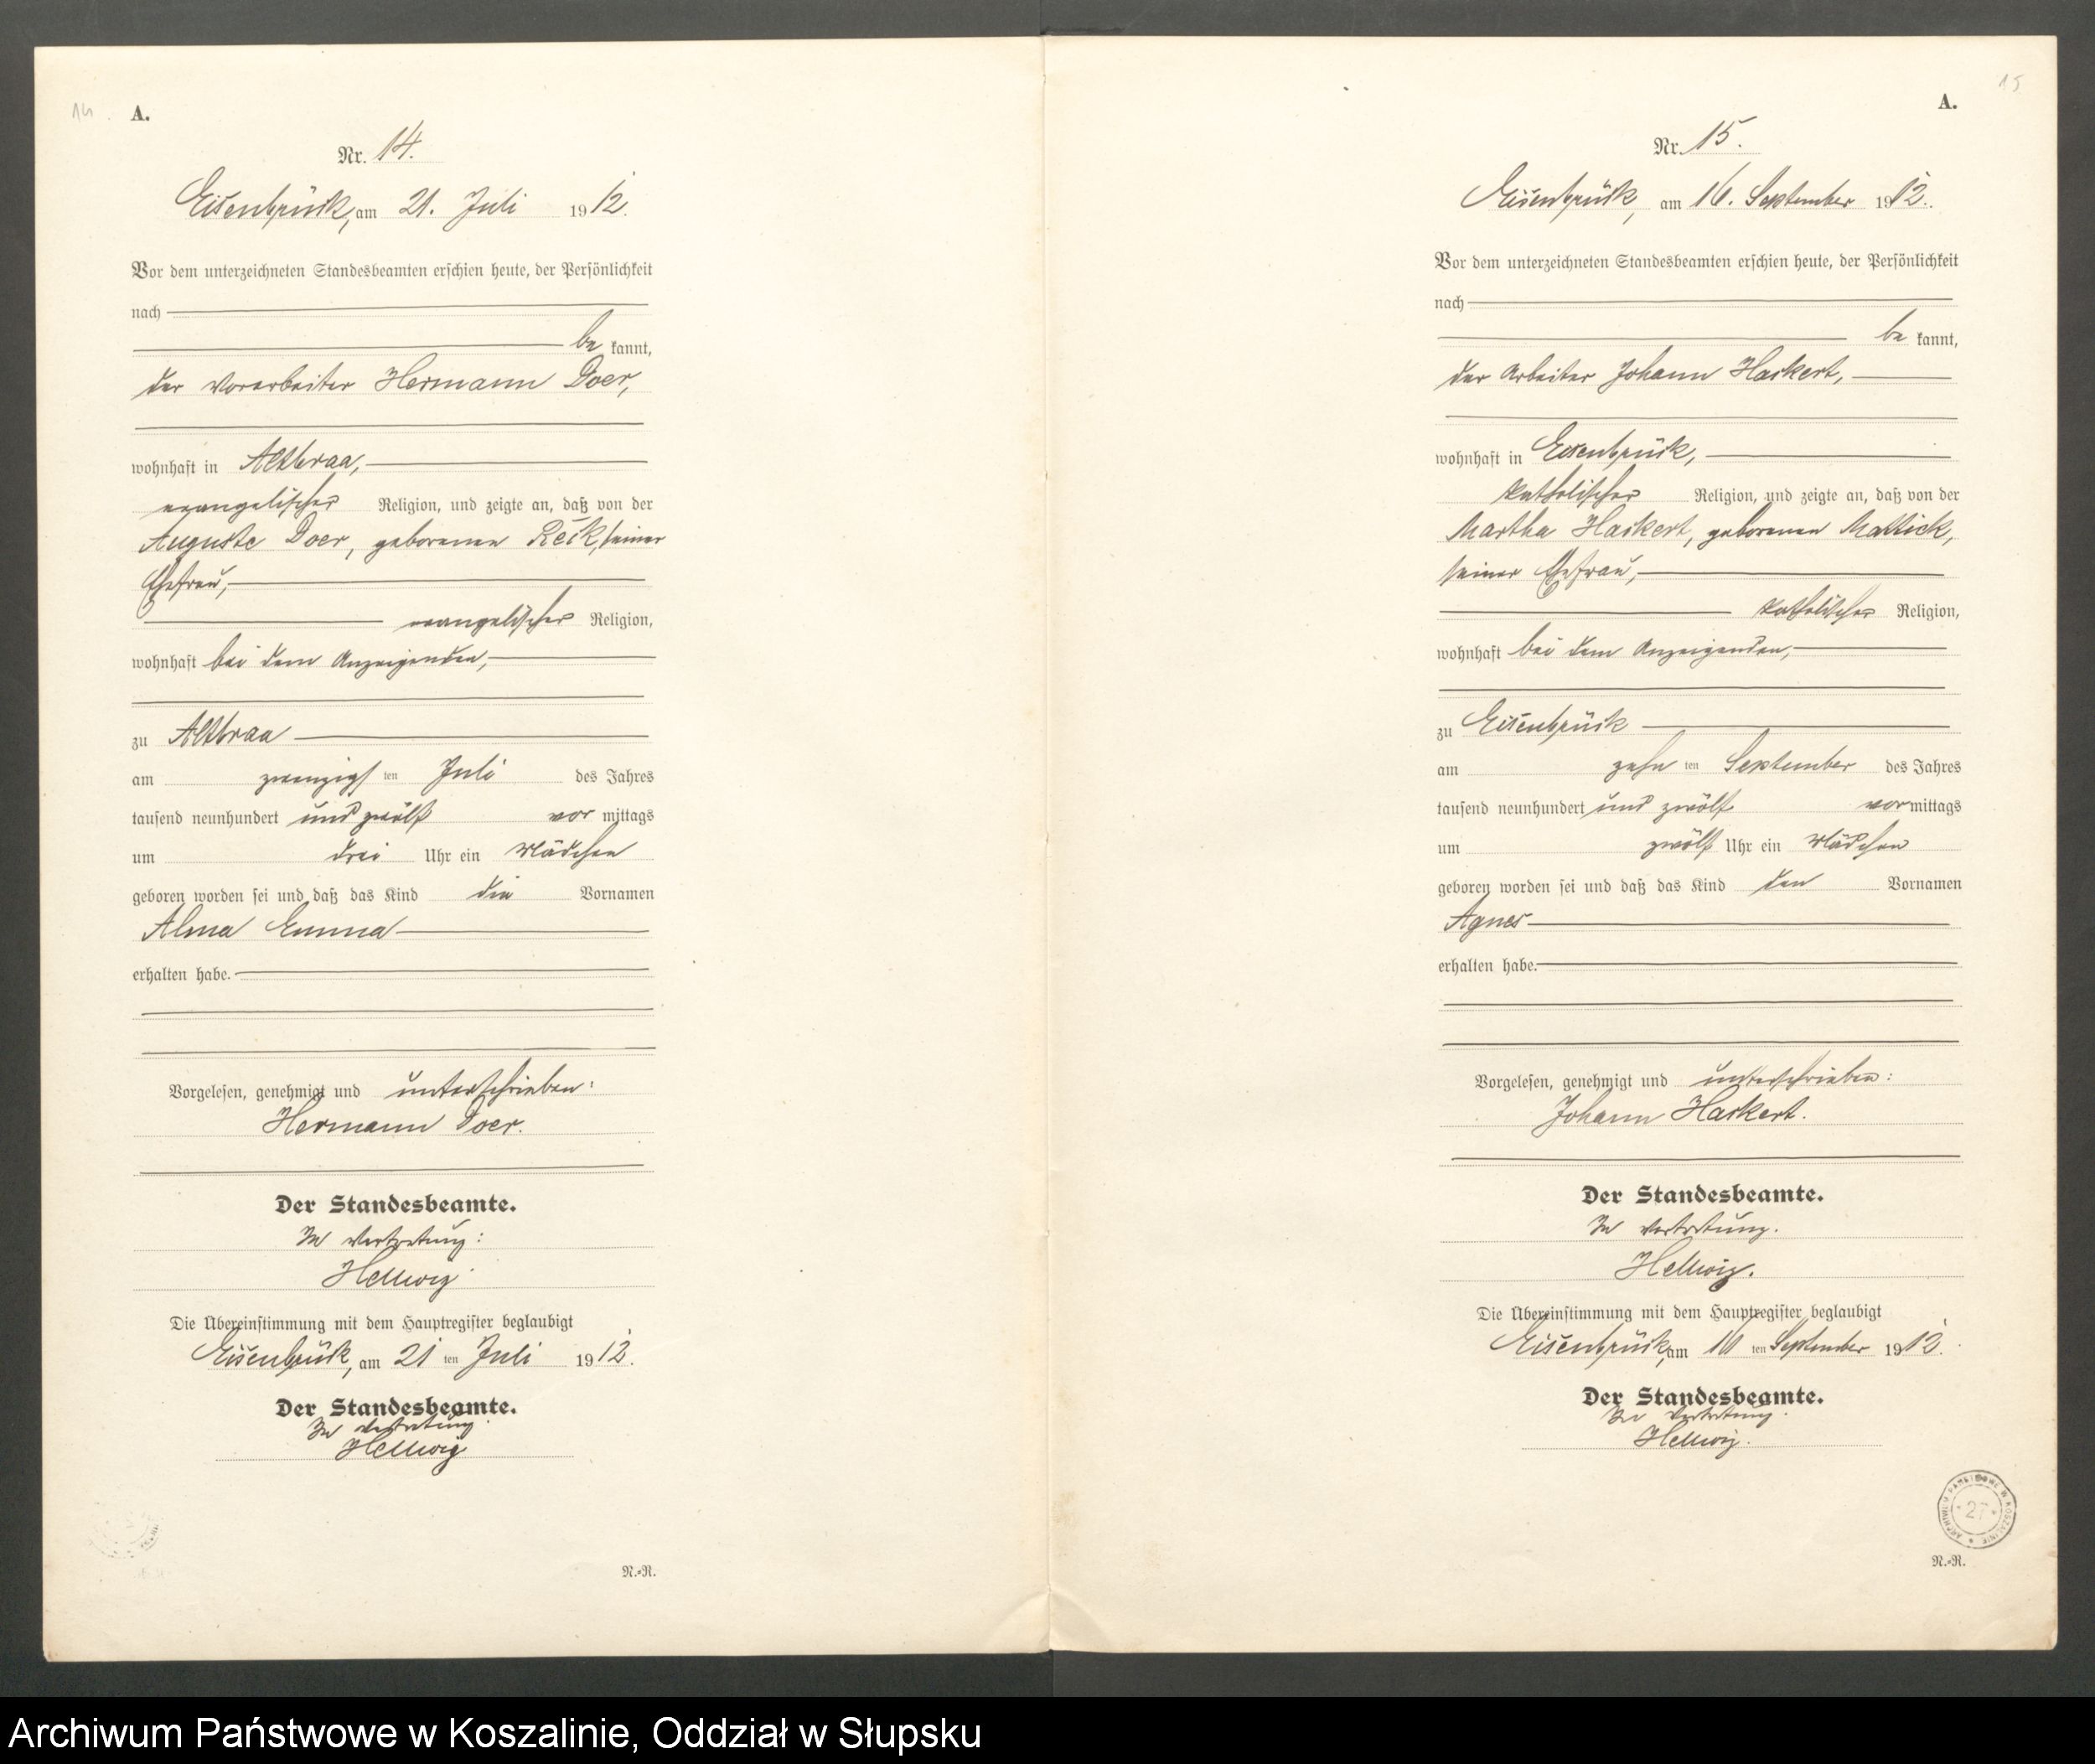 14
A.
Nr. 14.
Eisenbrück, am 21. Juli 1912.
Vor dem unterzeichneten Standesbeamten erschien heute, der Persönlichkeit
nach
be kannt,
der Vorarbeiter Hermann Doer,
wohnhaft in Altbraa,
evangelischer Religion, und zeigte an, daß von der
Auguste Doer, geborenen Reck, seiner
Ehefrau,
evangelischer Religion,
wohnhaft bei dem Anzeigenden,
zu Altbraa
am zwanzigsten Juli des Jahres
tausend neunhundert und zwölf vor mittags
um drei Uhr ein Mädchen
geboren worden sei und daß das Kind die Vornamen
Alma Emma
erhalten habe.
Vorgelesen, genehmigt und unterschrieben:
Hermann Doer.
Der Standesbeamte.
In Vertretung:
Hellwig
Die Übereinstimmung mit dem Hauptregister beglaubigt
Eisenbrück, am 21 ten Juli 1912.
Der Standesbeamte.
In Vertretung.
Hellwig
N.-R.
15
A.
Nr. 15.
Eisenbrück, am 16. September 1912.
Vor dem unterzeichneten Standesbeamten erschien heute, der Persönlichkeit
nach
be kannt,
der Arbeiter Johann Haskert,
wohnhaft in Eisenbrück,
katholischer Religion, und zeigte an, daß von der
Martha Haskert, geborenen Mallick,
seiner Ehefrau,
katholischer Religion,
wohnhaft bei dem Anzeigenden,
zu Eisenbrück
am zehn ten September des Jahres
tausend neunhundert und zwölf vormittags
um zwölf Uhr ein Mädchen
geboren worden sei und daß das Kind den Vornamen
Agnes
erhalten habe.
Vorgelesen, genehmigt und unterschrieben:
Johann Haskert.
Der Standesbeamte.
In Vertretung.
Hellwig.
Die Übereinstimmung mit dem Hauptregister beglaubigt
Eisenbrück, am 16 ten September 1912.
Der Standesbeamte.
In Vertretung.
Hellwig.
ARCHIWUM PAŃSTWOWE W KOSZALINIE
* 27 *
N.-R.
Archiwum Państwowe w Koszalinie, Oddział w Słupsku